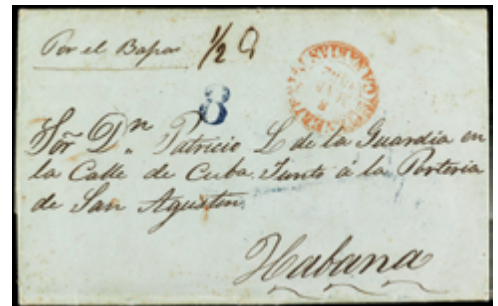 Por el Bapor 1/2 O
8
Sor Dn. Patricio L de la Guardia en
la Calle de Cuba Junto á la Porteria
de San Agustin
Habana